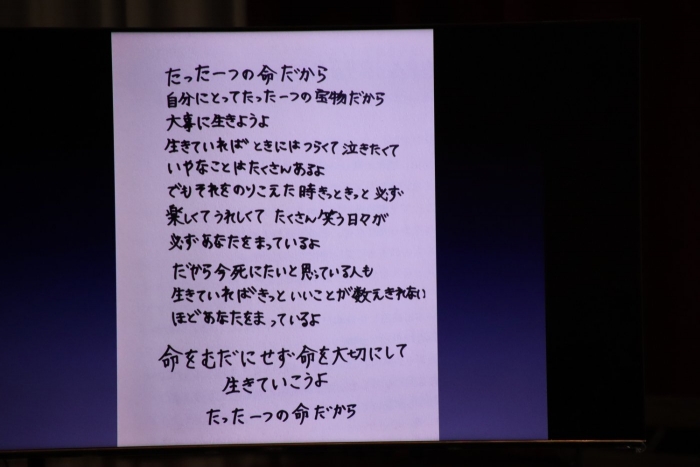 たった一つの命だから
自分にとってたった一つの宝物だから
大事に生きようよ
生きていればときにはつらくて泣きたくて
いやなことはたくさんあるよ
でもそれをのりこえた時きっときっと必ず
楽しくてうれしくてたくさん笑う日々が
必ずあなたをまっているよ
だから今死にたいと思っている人も
生きていればきっといいことが数えきれない
ほどあなたをまっているよ
命をむだにせず命を大切にして
生きていこうよ
たった一つの命だから